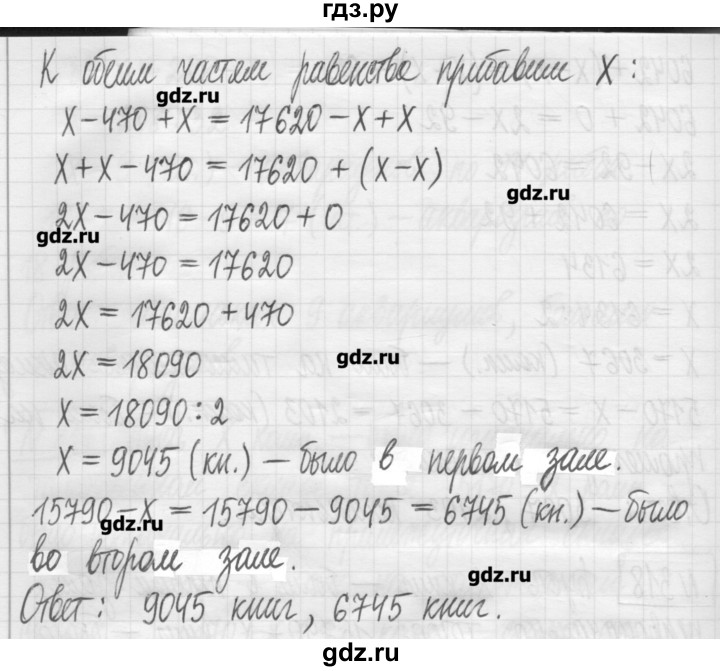 гдз.ру
К обеим частям равенства прибавим X:
gdz.ru
X-470+X=17620-X+X
X+X-470=17620+(X-X)
gdz.ru
2X-470=17620+0
gdz.ru
2X-470=17620
2X=17620+470
gdz.ru
2X=18090
X=18090:2
X=9045 (кн.) – было в первом зале.
15790-X=15790-9045=6745 (кн.) – было
gdz.ru
во втором зале.
gdz.ru
Ответ: 9045 книг, 6745 книг.
гдз.ру